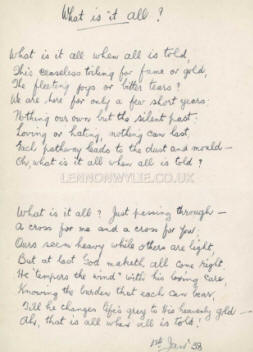 What is it all ?
What is it all when all is told,
This ceaseless toiling for fame or gold,
The fleeting joys or bitter tears?
We are here for only a few short years:
Nothing our own but the silent past;
Loving or hating, nothing can last,
Each pathway leads to the dust and mould —
Oh, what is it all when all is told ?
LENNONWYLIE.CO.UK
What is it all ? Just passing through —
A cross for me and a cross for you;
Ours seem heavy while others are light,
But at last God maketh all come right
He "tempers the wind" with his loving care,
Knowing the burden that each can bear,
Till he changes life's grey to His heavenly gold —
Ah, that is all when all is told.
Jan' 58